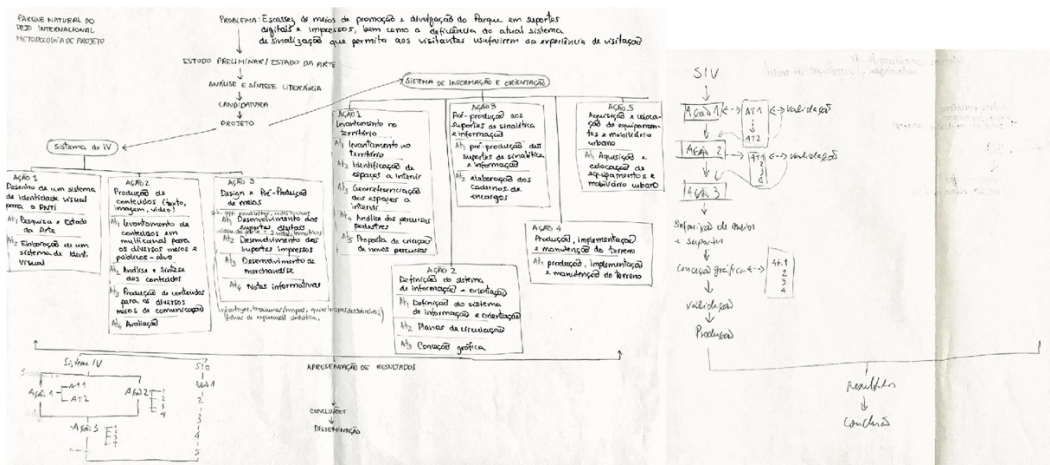 PARQUE NATURAL DO
TEJO INTERNACIONAL
METODOLOGIA DE PROJETO
PROBLEMA: Escassez de meios de promoção e divulgação do Parque em suportes
digitais e impressos, bem como a deficiência do atual sistema
de sinalização que permita aos visitantes usufruirem da experiência de visitação
ESTUDO PRELIMINAR / ESTADO DA ARTE
ANÁLISE E SÍNTESE LITERÁRIA
CANDIDATURA
PROJETO
SISTEMA DE INFORMAÇÃO E ORIENTAÇÃO
Sistema de IV
AÇÃO 1
Desenho de um sistema
de identidade visual
para o PNTI
At1 Pesquisa e Estado
da Arte
At2 Elaboração de um
sistema de Ident.
Visual
AÇÃO 2
Produção de
conteúdos (texto,
imagem, vídeo)
At1 Levantamento de
conteúdos em
multicanal para
os diversos meios e
públicos-alvo
At2 Análise e Síntese
dos conteúdos
At3 Produção de conteúdos
para os diversos
meios de comunicação
At4 Avaliação
AÇÃO 3
Design e Pré-Produção
de meios
At1 Desenvolvimento dos
suportes digitais
At2 Desenvolvimento dos
suportes impressos
At3 Desenvolvimento de
merchandise
At4 Notas informativas
AÇÃO 1
Levantamento no
território
At1 levantamento no
território
At2 Identificação de
espaços a intervir
At3 Georreferenciação
dos espaços a
intervir
At4 Análise dos percursos
pedestres
At5 Proposta de criação
de novos percursos
AÇÃO 2
Definição do sistema
de informação e orientação
At1 Definição do sistema
de informação e orientação
At2 Planos de circulação
At3 Conceção gráfica
AÇÃO 3
Pré-produção dos
suportes de sinalética
e informação
At1 pré-produção dos
suportes de sinalética
e informação
At2 elaboração dos
cadernos de
encargos
AÇÃO 4
Produção, implementação
e manutenção do terreno
At1 produção, implementação
e manutenção do terreno
AÇÃO 5
Aquisição e coloca-
ção de equipamen-
tos e mobiliário
urbano
At1 Aquisição e
colocação de
equipamentos e
mobiliário urbano
APRESENTAÇÃO DE RESULTADOS
CONCLUSÕES
DISSEMINAÇÃO
Sistema IV
Ação 1
AT1
AT2
Ação 2
1
2
3
4
Ação 3
SIO
2
3
4
5
SIV
AÇÃO 1
AT1
AT2
validação
AÇÃO 2
validação
AÇÃO 3
Definição de meios
e suportes
conceção gráfica
At.1
2
3
4
validação
Produção
Resultados
Conclusão